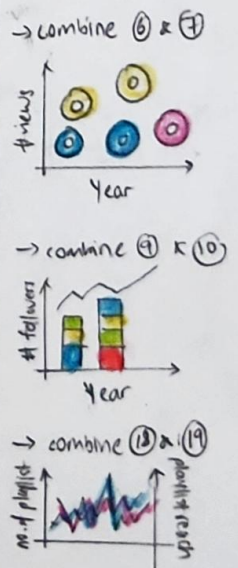 → combine ⑥ & ⑦
# views
Year
→ combine ⑨ & ⑩
# followers
Year
→ combine ⑱ & ⑲
no. of playlist
playlist reach